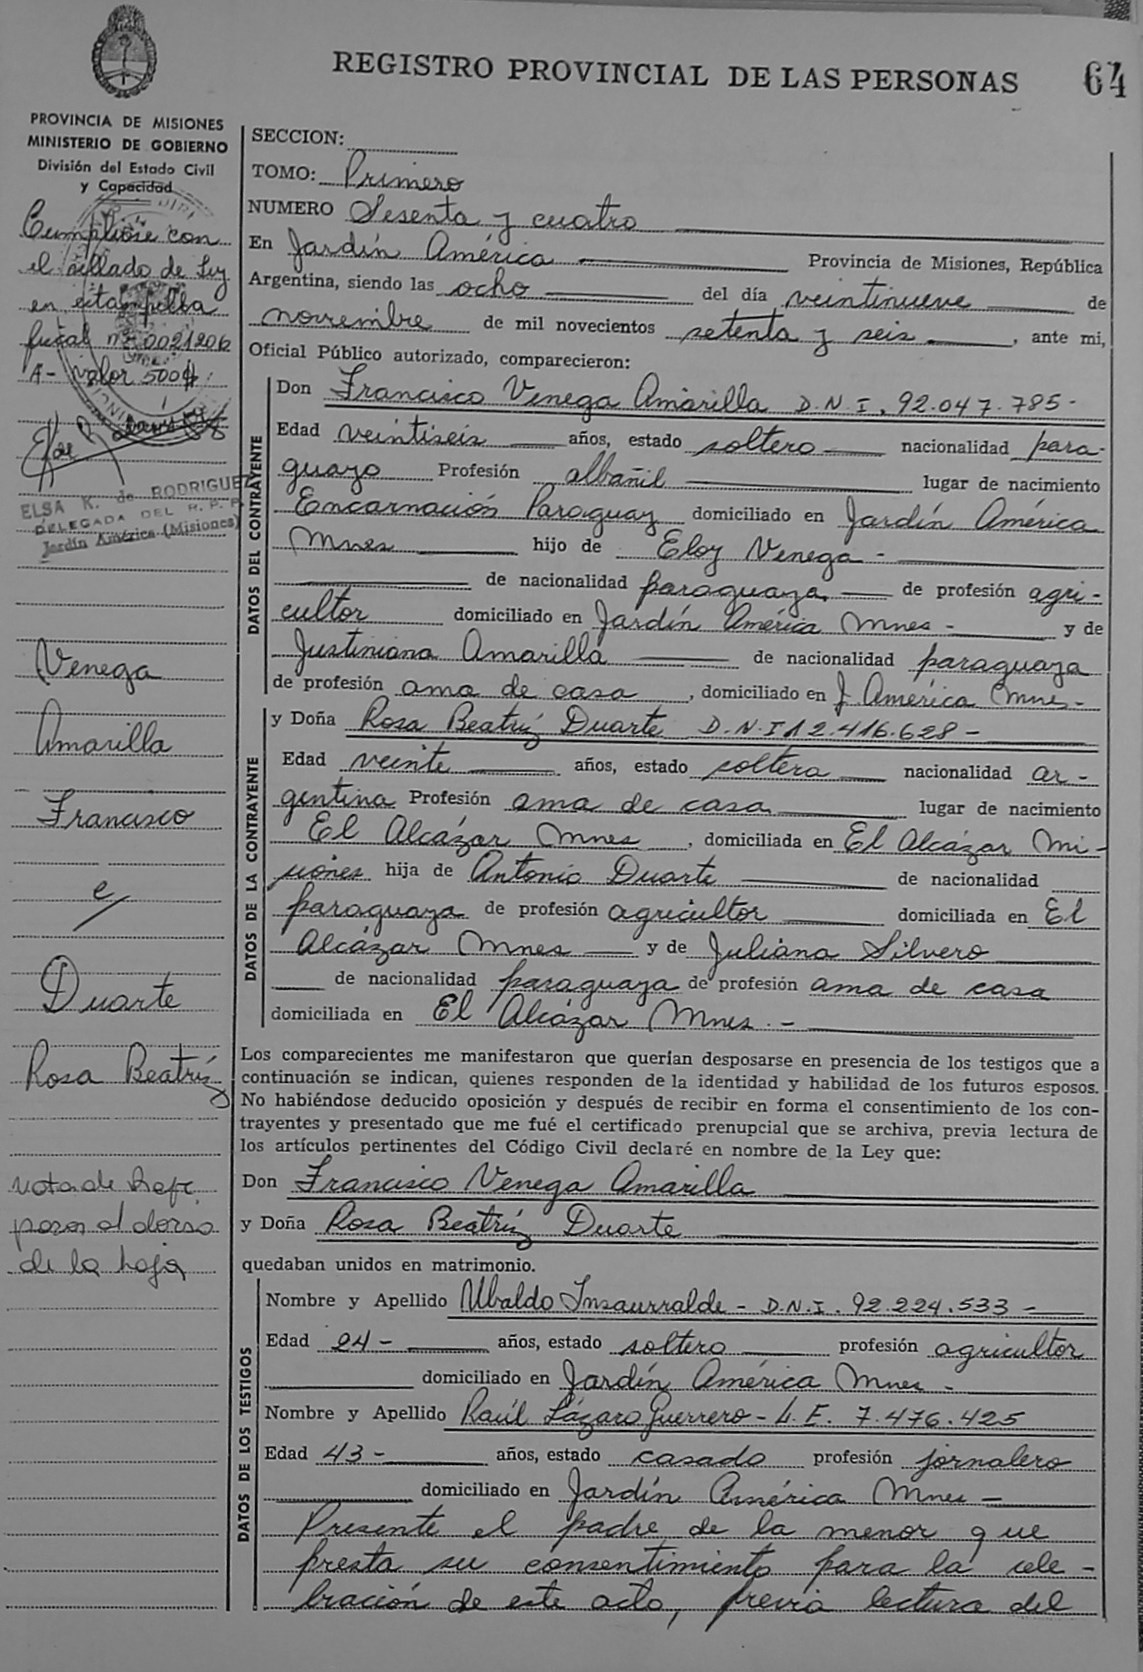 REGISTRO PROVINCIAL DE LAS PERSONAS 64
PROVINCIA DE MISIONES
MINISTERIO DE GOBIERNO
División del Estado Civil
y Capacidad
Cumplióse con
el sellado de Ley
en estampilla
fiscal nº 0021206
A- valor 500$
ELSA K. de RODRIGUEZ
DELEGADA DEL R. P. P.
Jardín América (Misiones)
Venega
Amarilla
Francisco
e/
Duarte
Rosa Beatríz
Nota de Refe.
pasa al dorso
de la hoja
SECCION:
TOMO: Primero
NUMERO Sesenta y cuatro
En Jardín América Provincia de Misiones, República
Argentina, siendo las ocho del día veintinueve de
noviembre de mil novecientos setenta y seis, ante mi,
Oficial Público autorizado, comparecieron:
DATOS DEL CONTRAYENTE
Don Francisco Venega Amarilla D.N.I. 92.047.785-
Edad veintiseis años, estado soltero nacionalidad para-
guayo Profesión albañil lugar de nacimiento
Encarnación Paraguay domiciliado en Jardín América
Mnes hijo de Eloy Venega -
de nacionalidad paraguaya, de profesión agri-
cultor domiciliado en Jardín América Mnes - y de
Justiniana Amarilla de nacionalidad paraguaya
de profesión ama de casa, domiciliado en J. América Mnes-
DATOS DE LA CONTRAYENTE
y Doña Rosa Beatríz Duarte D.N.I 12.416.628-
Edad veinte años, estado soltera nacionalidad ar-
gentina Profesión ama de casa lugar de nacimiento
El Alcázar Mnes, domiciliada en El Alcázar Mi-
siones hija de Antonio Duarte de nacionalidad
paraguaya de profesión agricultor domiciliada en El
Alcázar Mnes y de Juliana Silvero
de nacionalidad paraguaya de profesión ama de casa
domiciliada en El Alcázar Mnes.-
Los comparecientes me manifestaron que querían desposarse en presencia de los testigos que a
continuación se indican, quienes responden de la identidad y habilidad de los futuros esposos.
No habiéndose deducido oposición y después de recibir en forma el consentimiento de los con-
trayentes y presentado que me fué el certificado prenupcial que se archiva, previa lectura de
los artículos pertinentes del Código Civil declaré en nombre de la Ley que:
Don Francisco Venega Amarilla
y Doña Rosa Beatríz Duarte
quedaban unidos en matrimonio.
DATOS DE LOS TESTIGOS
Nombre y Apellido Ubaldo Insaurralde - D.N.I. 92.224.533 -
Edad 24 - años, estado soltero profesión agricultor
domiciliado en Jardín América Mnes -
Nombre y Apellido Raúl Lázaro Guerrero - L.E. 7.476.425
Edad 43 - años, estado casado profesión jornalero
domiciliado en Jardín América Mnes -
Presente el padre de la menor que
presta su consentimiento para la cele-
bración de este acto, previa lectura del